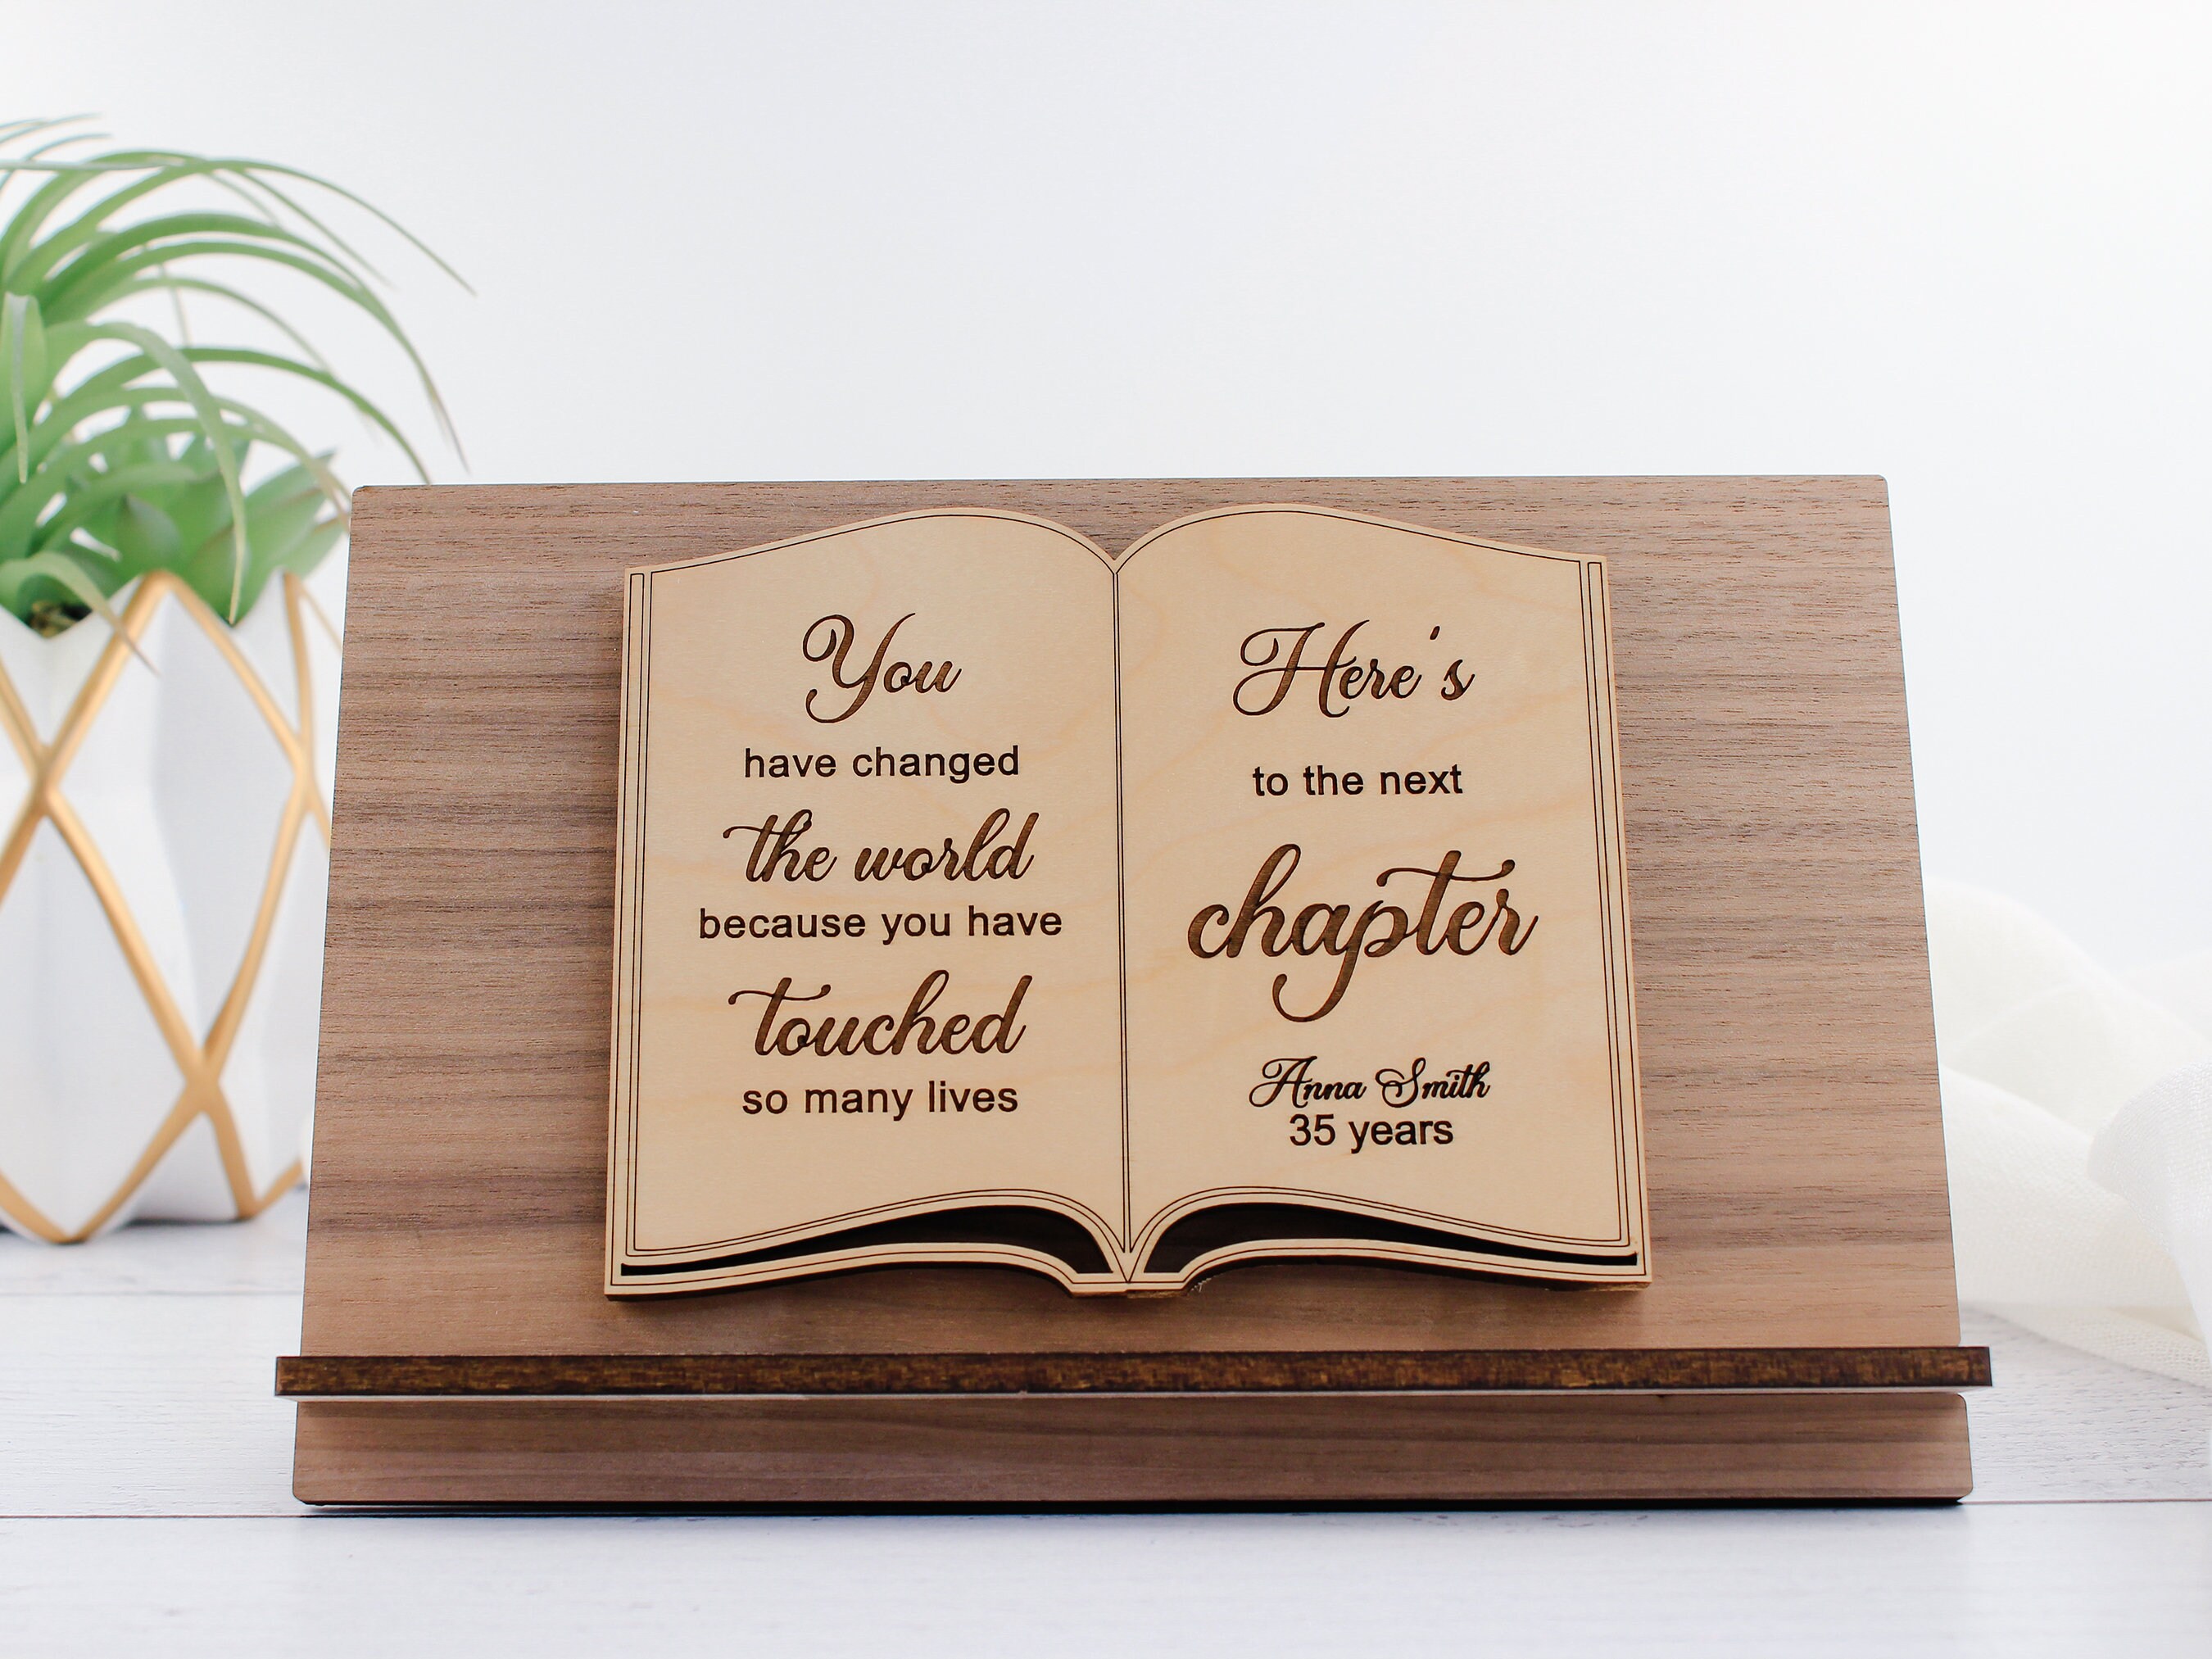 You
have changed
the world
because you have
touched
so many lives
Here's
to the next
chapter
Anna Smith
35 years